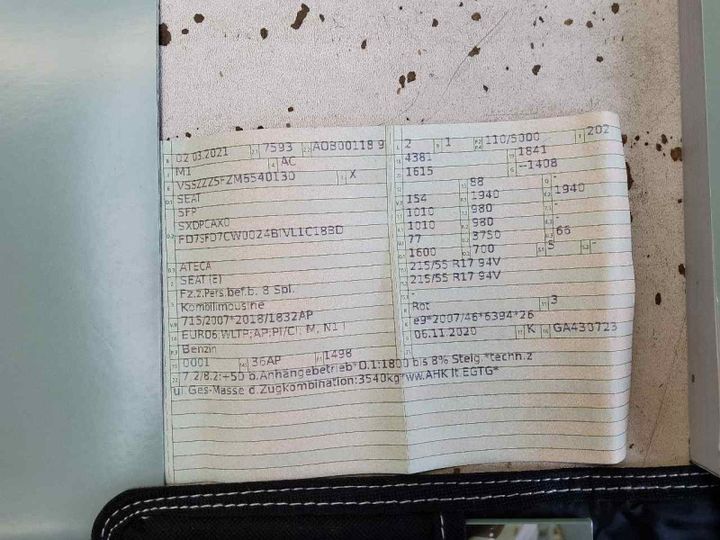 02.03.2021 7593 AOB00118 9
M1 AC
X
SEAT
SFP
SXDPCAX0
ATECA
SEAT (E)
Fz.z.Pers.bef.b. 8 Spl.
Kombilimousine
715/2007*2018/1832AP
EURO6;WLTP;AP;PI/CI; M, N1 I
Benzin
0001 36AP 1498
7.2/8.2:+50 b.Anhängebetrieb*O.1:1800 bis 8% Steig.*techn.z
ul Ges-Masse d.Zugkombination:3540kg*ww.AHK lt.EGTG*
2 1 110/5000 202
4381 1841
1615 --1408
88 -
154 1940 1940
1010 980 -
1010 980 -
77 3750 66
1600 700 5 -
215/55 R17 94V
215/55 R17 94V
-
Rot 3
e9*2007/46*6394*26
06.11.2020 K GA430723